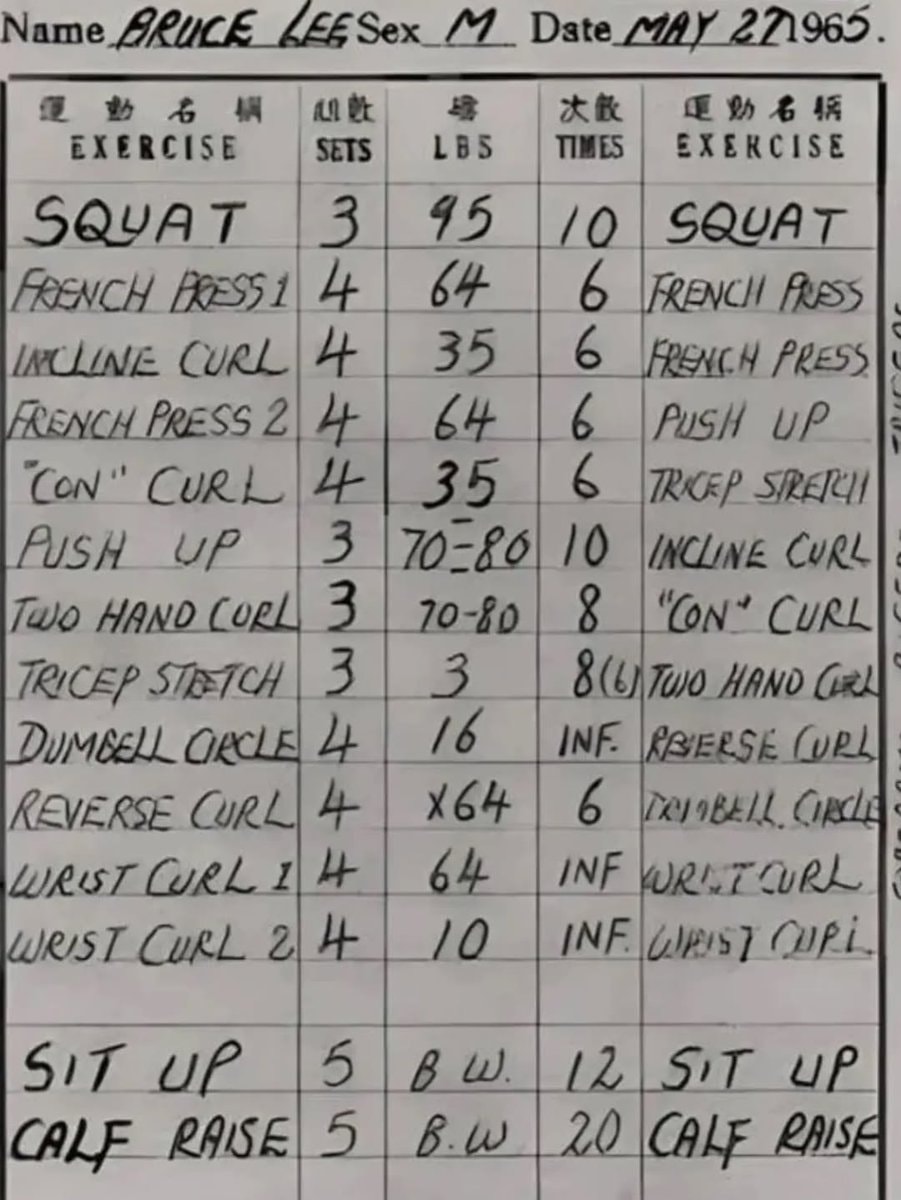 Name BRUCE LEE Sex M Date MAY 27 1965.
運動名稱 組數 磅 次數 運動名稱
EXERCISE SETS LBS TIMES EXERCISE
SQUAT 3 95 10 SQUAT
FRENCH PRESS 1 4 64 6 FRENCH PRESS
INCLINE CURL 4 35 6 FRENCH PRESS
FRENCH PRESS 2 4 64 6 PUSH UP
"CON" CURL 4 35 6 TRICEP STRETCH
PUSH UP 3 70-80 10 INCLINE CURL
TWO HAND CURL 3 70-80 8 "CON" CURL
TRICEP STRETCH 3 3 8(6) TWO HAND CURL
DUMBELL CIRCLE 4 16 INF. REVERSE CURL
REVERSE CURL 4 x64 6 DUMBELL CIRCLE
WRIST CURL 1 4 64 INF WRIST CURL
WRIST CURL 2 4 10 INF. WRIST CURL
SIT UP 5 B.W. 12 SIT UP
CALF RAISE 5 B.W 20 CALF RAISE